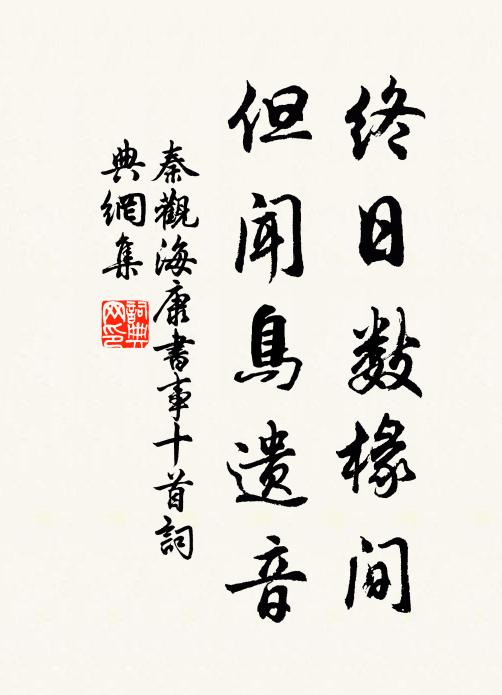 终日数椽间
但闻鸟遗音
秦觀海康書事十首詞
典網集
詞典
网印